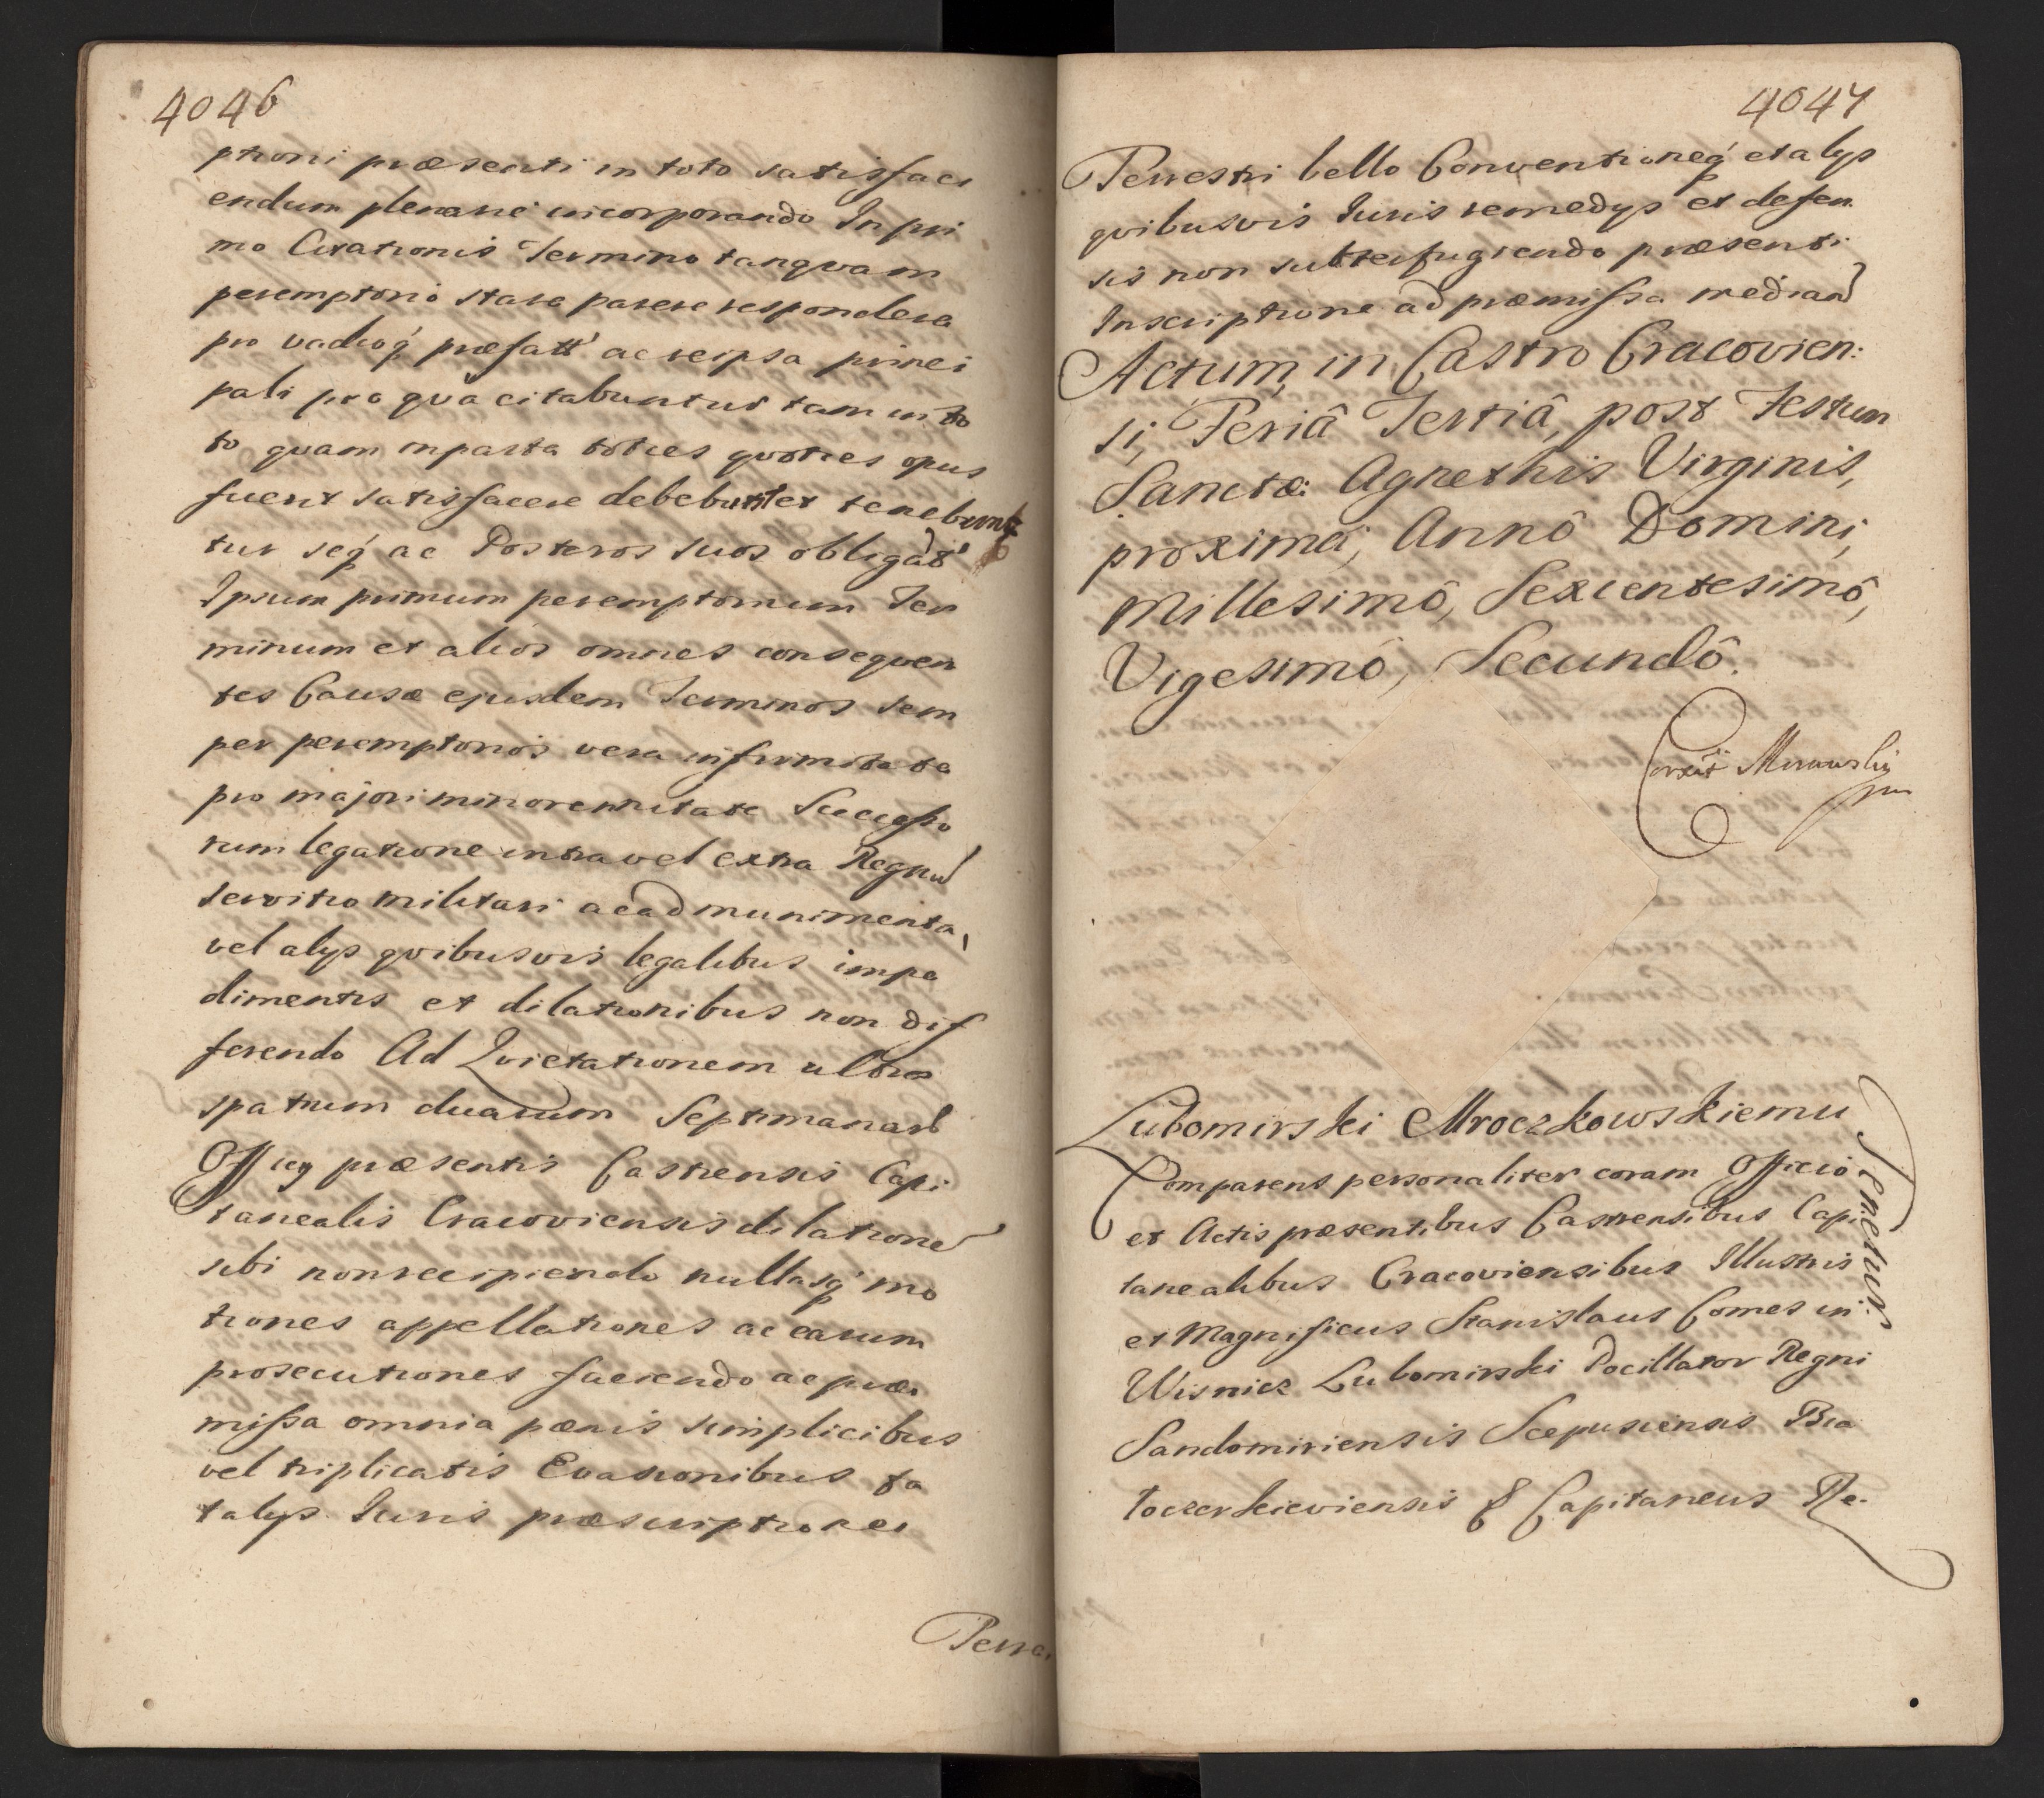 4046
ptioni præsenti in toto satisfaci
endum plenarie incorporando In pri
mo Citationis Termino tanqvam
peremptorio stare parere respondere
pro vadioq́ præfatt' ac reipsa princi
pali pro qva citabuntur tam in to
to qvam in parte toties qvoties opus
fuerit satisfacere debebunt et tenebun
tur seq́ ac Posteros suos obligãt
Ipsum primum peremptorium Ter
minum et alios omnes conseqven
tes Causæ ejusdem Terminos sem
per peremptorios vera infirmitate
pro majori minorennitate Succeßo
rum legatione intra vel extra Regnũ
servitio militari ac ad munimenta
vel alys qvibusvis legalibus impe
dimentis et dilationibus non dif
ferendo Ad Qvietationem ultra
spatium duarum Septimanarũ
Officy præsentis Castrensis Capi
tanealis Cracoviensis dilationẽ
sibi non recipiendo nullasq́ mo
tiones appellationes ac earum
prosecutiones faciendo ac præ
mißa omnia pænis simplicibus
vel triplicatis Evasionibus fa
talys Iuris præscriptiones
Terre
4047
Terrestri bello Conventioneq́ et alys
qvibusvis Iuris remedys et defen
sis non subterfugiendo præsenti
Inscriptione ad præmißa mediañ
Actum in Castro Cracovien:
si, Feriâ Tertiâ, post Festum
Sanctæ Agnethis Virginis,
proxima, Annô Domini,
Millesimô, Sexcentesimô,
Vigesimô, Secundô.
Correxit Morawski
mp
Lubomirski Mroczkowskiemu
Tenetur.
Comparens personaliter coram Officio
et Actis præsentibus Castrensibus Capi
tanealibus Cracoviensibus Illustris
et Magnificus Stanislaus Comes in
Wisnicz Lubomirski Pocillator Regni
Sandomiriensis Scepusiensis Bia
łoczerkieviensis & Capitaneus Re-